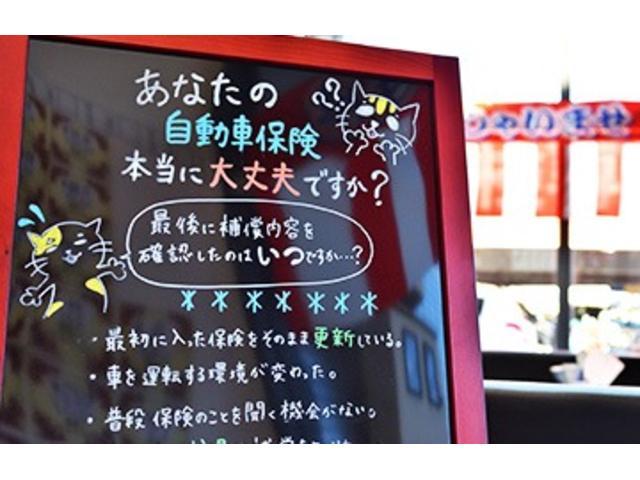 あなたの
自動車保険
本当に大丈夫ですか?
??
最後に補償内容を
確認したのはいつですか…?
* * * * * * *
・最初に入った保険をそのまま更新している。
・車を運転する環境が変わった。
・普段保険のことを聞く機会がない。
ゃいませ